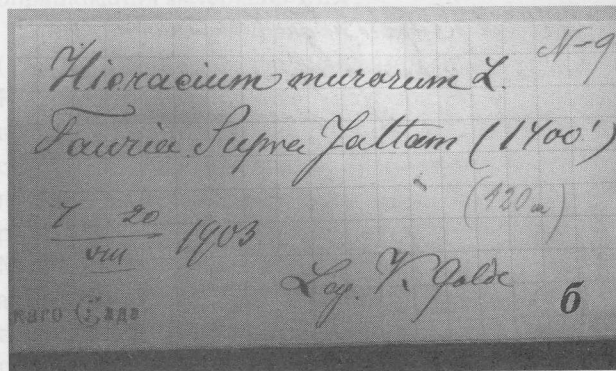 N-9
Hieracium murorum L.
Tauria. Supra Jaltam (1400')
(120m)
7 20
VIII 1903
Leg. K. Golde
каго Сада
б